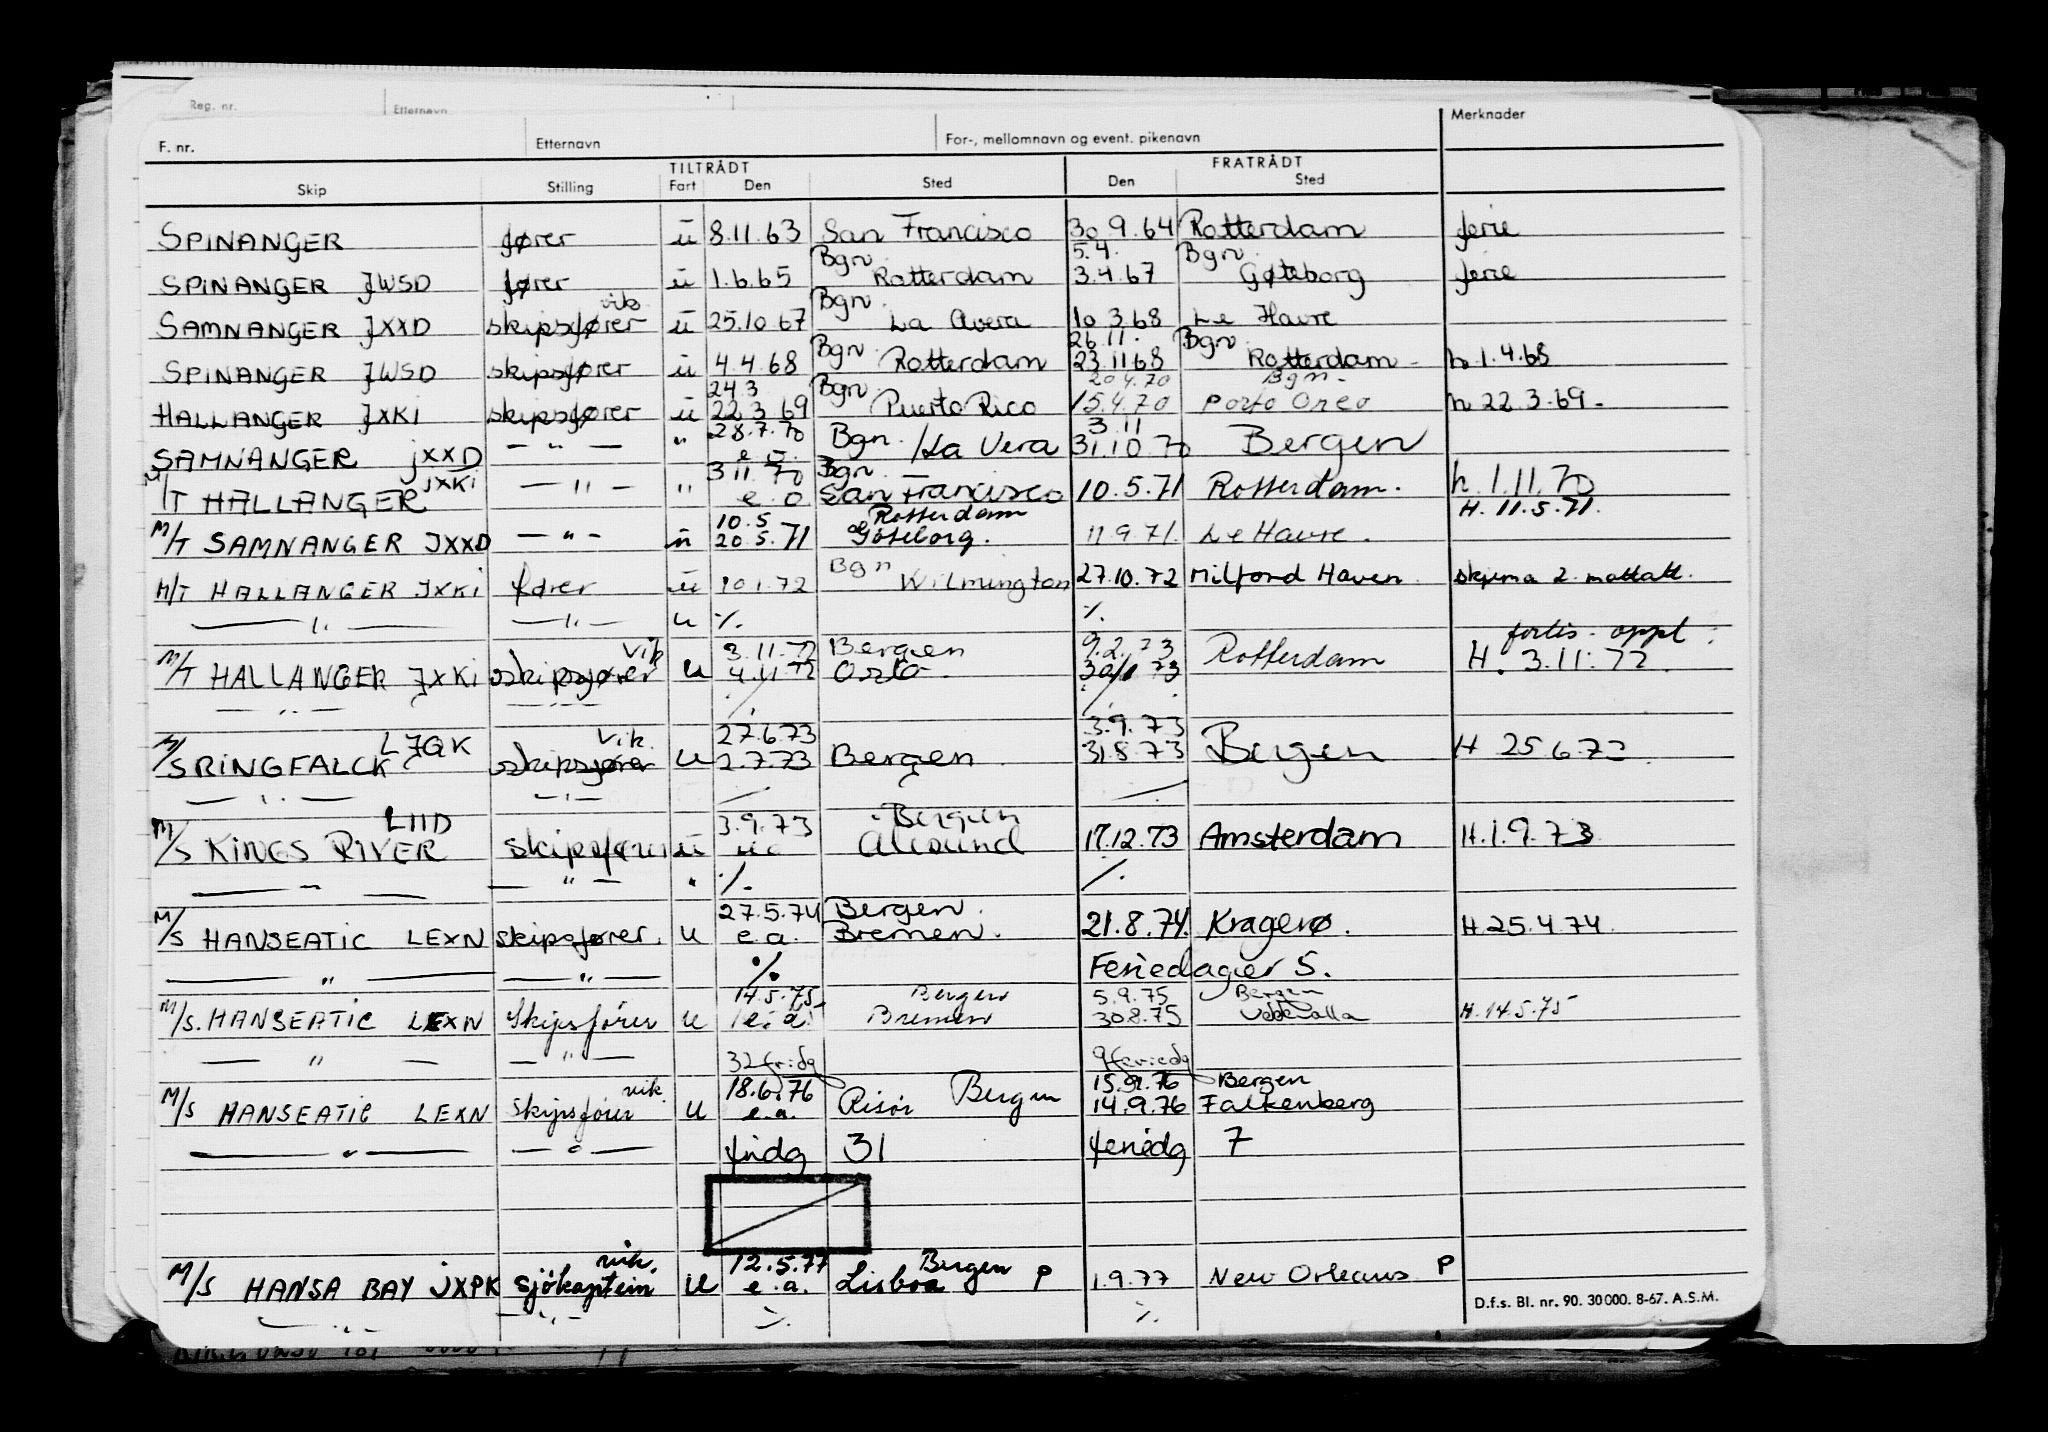 Reg. nr. Etternavn
F. nr. Etternavn For-, mellomnavn og event. pikenavn Merknader
TILTRÅDT FRATRÅDT
Skip Stilling Fart Den Sted Den Sted
SPINANGER fører ū 8.11.63 San Francisco 30 9.64 Rotterdam ferie
Bgn 5.4. Bgn.
SPINANGER JWSD fører ū 1.6.65 Rotterdam 3.4.67 Gøteborg ferie
vik. Bgn.
SAMNANGER JXXD skipsfører ū 25.10 67 La Avera 10 3.68 Le Havre
Bgn 26.11. Bgn.
SPINANGER JWSD skipsfører ū 4.4.68 Rotterdam 23.11 68 Rotterdam h 1.4.68
24.3 Bgn 20.4.70 Bgn.
HALLANGER JXKI skipsfører ū 22.3.69 Puerto Rico 15.4.70 Porto h 22.3.69.
28.7.70 3.11
SAMNANGER JXXD — " — " e.o. Bgn./La Vera 31.10.70 Bergen
JXKI 3.11.70 Bgn.
M/T HALLANGER — " — " e.o San Francisco 10.5.71 Rotterdam. h. 1.11.70
10.5 Rotterdam H. 11.5.71.
M/T SAMNANGER JXXD — " — ū 20.5.71 Göteborg. 11.9.71. Le Havre.
Bgn
M/T HALLANGER JXKI fører ū 10.1.72 Wilmington 27.10.72 Milford Haven. skjema 2 mottatt.
— " — — " — u %. %.
vik 3.11.72 Bergen 9.2.73 forts. oppt:
M/T HALLANGER JXKI skipsfører u 4.11.72 Oslo. 30/1 73 Rotterdam H. 3.11.72.
— " — — " — % %
LJGK vik. 27.6.73 3.9.73
M/S RINGFALCK skipsfører u 2.7.73 Bergen 31.8.73 Bergen H 25.6.73
— " — — " —
LIID 3.9.73 Bergen
M/S KINGS RIVER skipsfører ū Ålesund 17.12.73 Amsterdam H.1.9.73
— " — — " — " %. %.
27.5.74 Bergen.
M/S HANSEATIC LEXN skipsfører. u e.a. Bremen. 21.8.74. Kragerø. H.25.4.74.
— " — — " — % Feriedager 5.
14.5.75 Bergen 5.9.75 Bergen
M/S. HANSEATIC LEXN Skipsfører u e.a. Bremen 30.8.75 Uddevalla H.14.5.75
— " — — " — 32 fridg 9 feriedg
vik. 18.6.76 Bergen 15.9.76 Bergen
M/S HANSEATIC LEXN Skipsfører u e.a. Risör 14.9.76 Falkenberg
— " — — " — fridg 31 feriedg 7
vik. 12.5.77 Bergen
M/S HANSA BAY JXPK Sjökaptein u e.a. Lisboa P 1.9.77 New Orleans P
— " — — " — %. %.
D.f.s. Bl. nr. 90. 30000. 8-67. A.S.M.